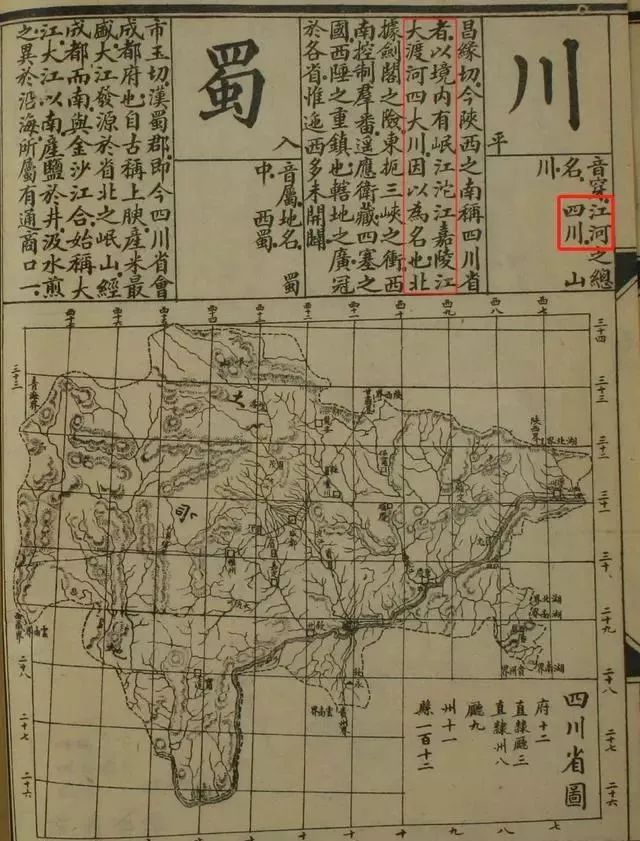 川
平
音穿。江河之總
名。四川。山
川
昌緣切。今陝西之南稱四川省
者。以境内有岷江沱江嘉陵江
大渡河四大川。因以為名也。北
據劍閣之險。東扼三峽之衝。西
南控制羣番。遥應衛藏。四塞之
國。西陲之重鎮也。轄地之廣。冠
於各省。惟迤西多未開闢
蜀
入
音屬。地名。蜀
中。西蜀
市玉切。漢蜀郡。即今四川省會
成都府也。自古稱上腴。產米最
盛。大江發源於省北之岷山。經
成都而南。與金沙江合。始稱大
江。大江以南。產鹽於井。汲水煎
之。異於沿海。所屬有通商口一
西七
西八
西九
西十
西十一
西十二
西十三
西十四
西十五
西十六
三十四
三十三
三十二
三十一
三十
二十九
二十八
二十七
二十六
三十三
青海界
甘肅界
陝西界
陝西界
湖北界
湖北界
湖南界
湖南界
貴州界
貴州界
雲南界
雲南界
成都
四川省圖
府十二
直隸廳三
直隸州八
廳九
州十一
縣一百十二
七
八
九
十
十一
十二
十三
十四